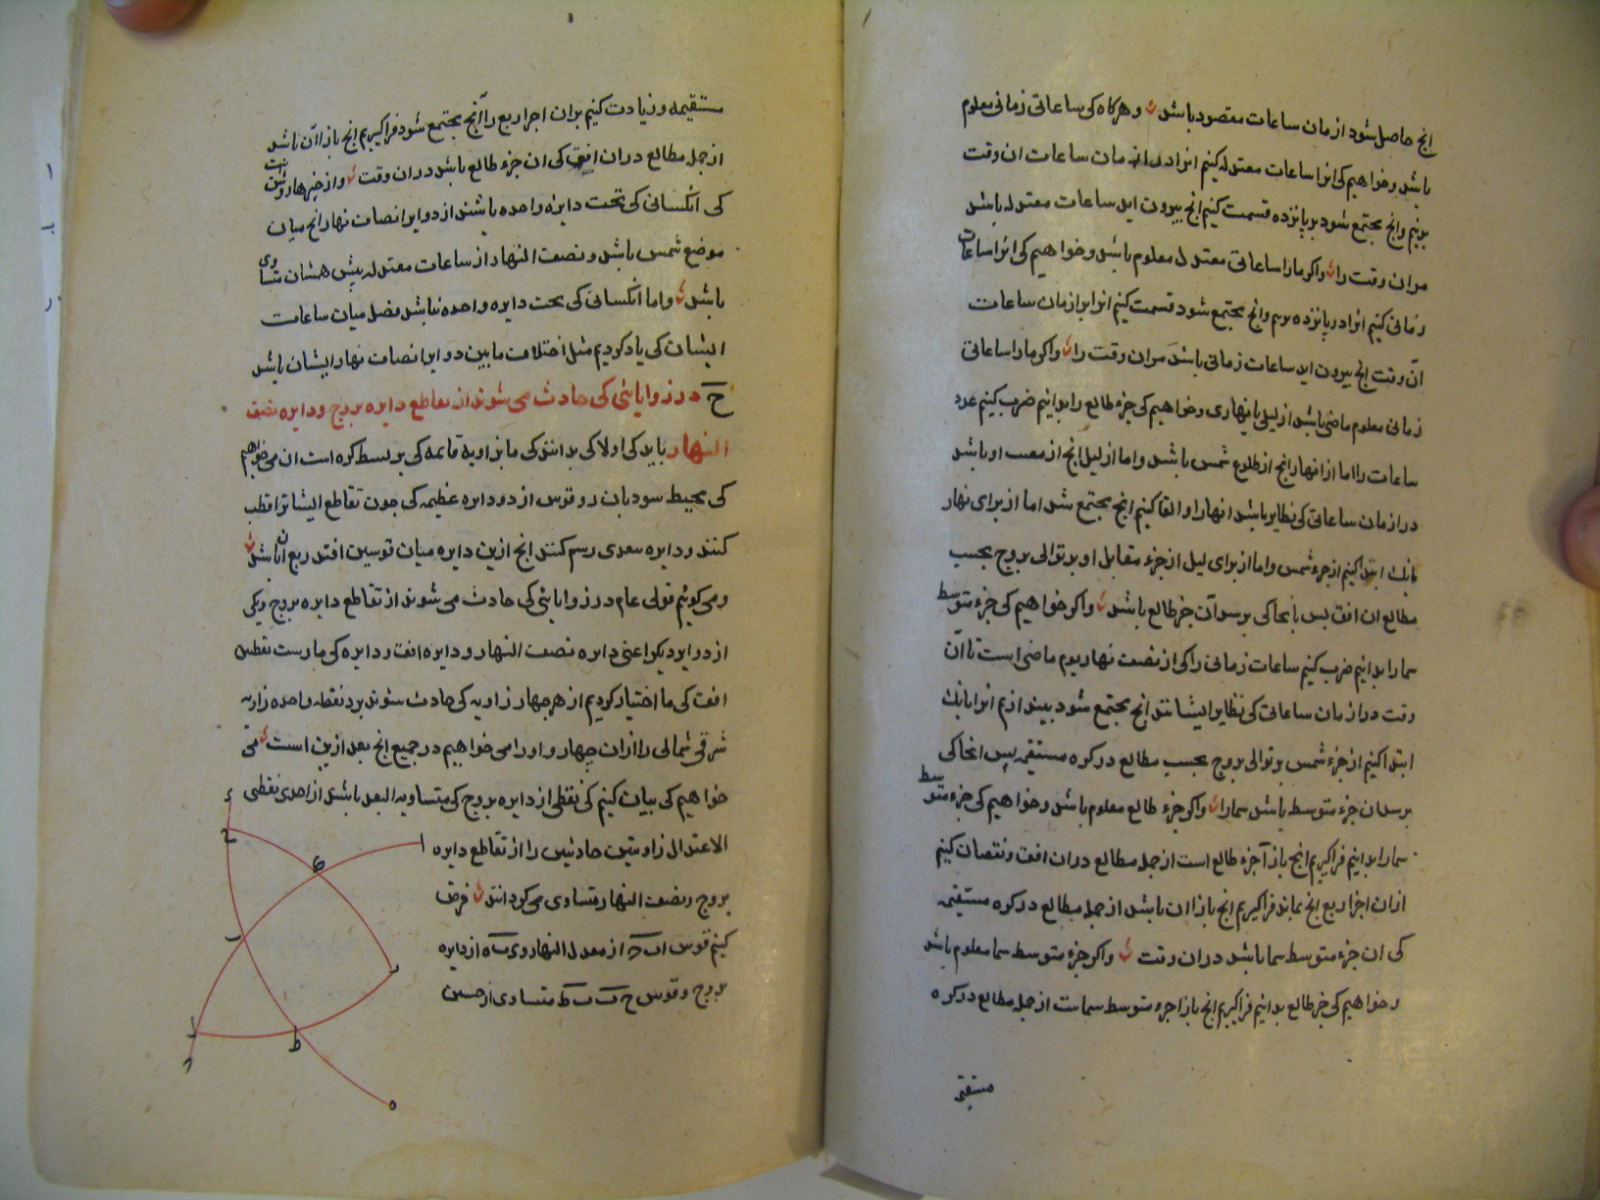 انج حاصل شود ازمان ساعات مقصود باشد ؞ وهرکاه کی ساعاتی زمانی معلوم
باشد وخواهیم کی انرا ساعات معتدله کنیم انرا در ازمان ساعات ان وقت
بزنیم وانج مجتمع شود بر پانزده قسمت کنیم انج بیرون اید ساعات معتدله باشد
مران وقت را ؞ واکر مارا ساعاتی معتدل معلوم باشد وخواهیم کی انرا ساعات
زمانی کنیم انرا در پانزده بریم وانج مجتمع شود قسمت کنیم انرا بر ازمان ساعات
آن وقت انج بیرون اید ساعات زمانی باشد مران وقت را ؞ واکر مارا ساعاتی
زمانی معلوم ماضی باشد از لیلی یا نهاری وخواهیم کی جزء طالع را بدانیم ضرب کنیم عدد
ساعات را اما از نهار انج از طلوع شمس باشد واما از لیل انج از مغیب او باشد
در ازمان ساعاتی کی نظایر باشد نهار او القا کنیم انج مجتمع شد اما از برای نهار
بانک ابتدا کنیم از جزء شمس واما از برای لیل از جزء مقابل او بر توالی بروج بحسب
مطالع ان افق بس بانجا کی برسد آن جز طالع باشد ؞ واکر خواهیم کی جزء متوسط
سمارا بدانیم ضرب کنیم ساعات زمانی را کی از نصف نهار یوم ماضی است تا آن
وقت در ازمان ساعاتی کی نظایر ایشانند انج مجتمع شود بیندازیم انرا بانک
ابتدا کنیم از جزء شمس بر توالی بروج بحسب مطالع در کره مستقیمه بس انجا کی
برسد ان جزء متوسط باشد سمارا ؞ واکر جزء طالع معلوم باشد وخواهیم کی جزء متوسط
سمارا بدانیم فراکیریم انج باز آ جزء طالع است از جمله مطالع در ان افق ونقصان کنیم
ازان اجزا ربع انج بماند فراکیریم انج باز اان باشد از جمله مطالع در کره مستقیمه
کی ان جزء متوسط سما باشد دران وقت ؞ واکر جزء متوسط سما معلوم باشد
وخواهیم کی جز طالع بدانیم فراکیریم انج باز اجزء متوسط سماست از جمله مطالع در کره
مستقیمه
مستقیمه وزیادت کنیم بران اجزا ربع را آنج مجتمع شود فراکیریم انج باز اآن باشد
از جمله مطالع دران افق کی ان جزء طالع باشد دران وقت ؞ واز جیزهار روشن است
کی انکسانی کی تحت دایره واحده باشند از دوایر انصاف نهار انج میان
موضع شمس باشد ونصف النهار از ساعات معتدله بیش همشان متساوی
باشد ؞ واما انکسانی کی تحت دایره واحده نباشد فضل میان ساعات
ایشان کی یاد کردیم مثل اختلاف مابین دوایر انصاف نهار ایشان باشد
ح در زوایایی کی حادث می شوند از تقاطع دایره بروج ودایره نصف
النهار باید کی اولا کی بدانند کی ما بزاویه قائمه کی بر بسط کره است ان می خواهیم
کی محیط سود بان دو قوس از دو دایره عظیمه کی جون تقاطع ایشانرا قطب
کنند ودایره ببعدی رسم کنند انج ازین دایره میان قوسین افتد ربع ان باشد ؞
ومی کوئیم قولی عام در زوایایی کی حادث می شوند از تقاطع دایره بروج ویکی
از دوایر دیکر اعنی دایره نصف النهار ودایره افق ودایره کی مارست بقطبین
افق کی ما اختیار کردیم از هر جهار زاویه کی حادث شوند برد نقطه واحده زاویه
شرقی شمالی را ازان جهار واورا می خواهیم در جمیع انج بعد ازین است ؞ می
خواهیم کی بیان کنیم کی نقطی از دایره بروج کی متساویه البعد باشند از احدی نقطی
الاعتدال زاویتین حادثتین را از تقاطع دایره
بروج ونصف النهار متساوی می کردانند ؞ فرض
کنیم قوس اب ج از معدل النهار وی ب ه از دایره
بروج وقوس ح ب ب ط متساوی از جنبین